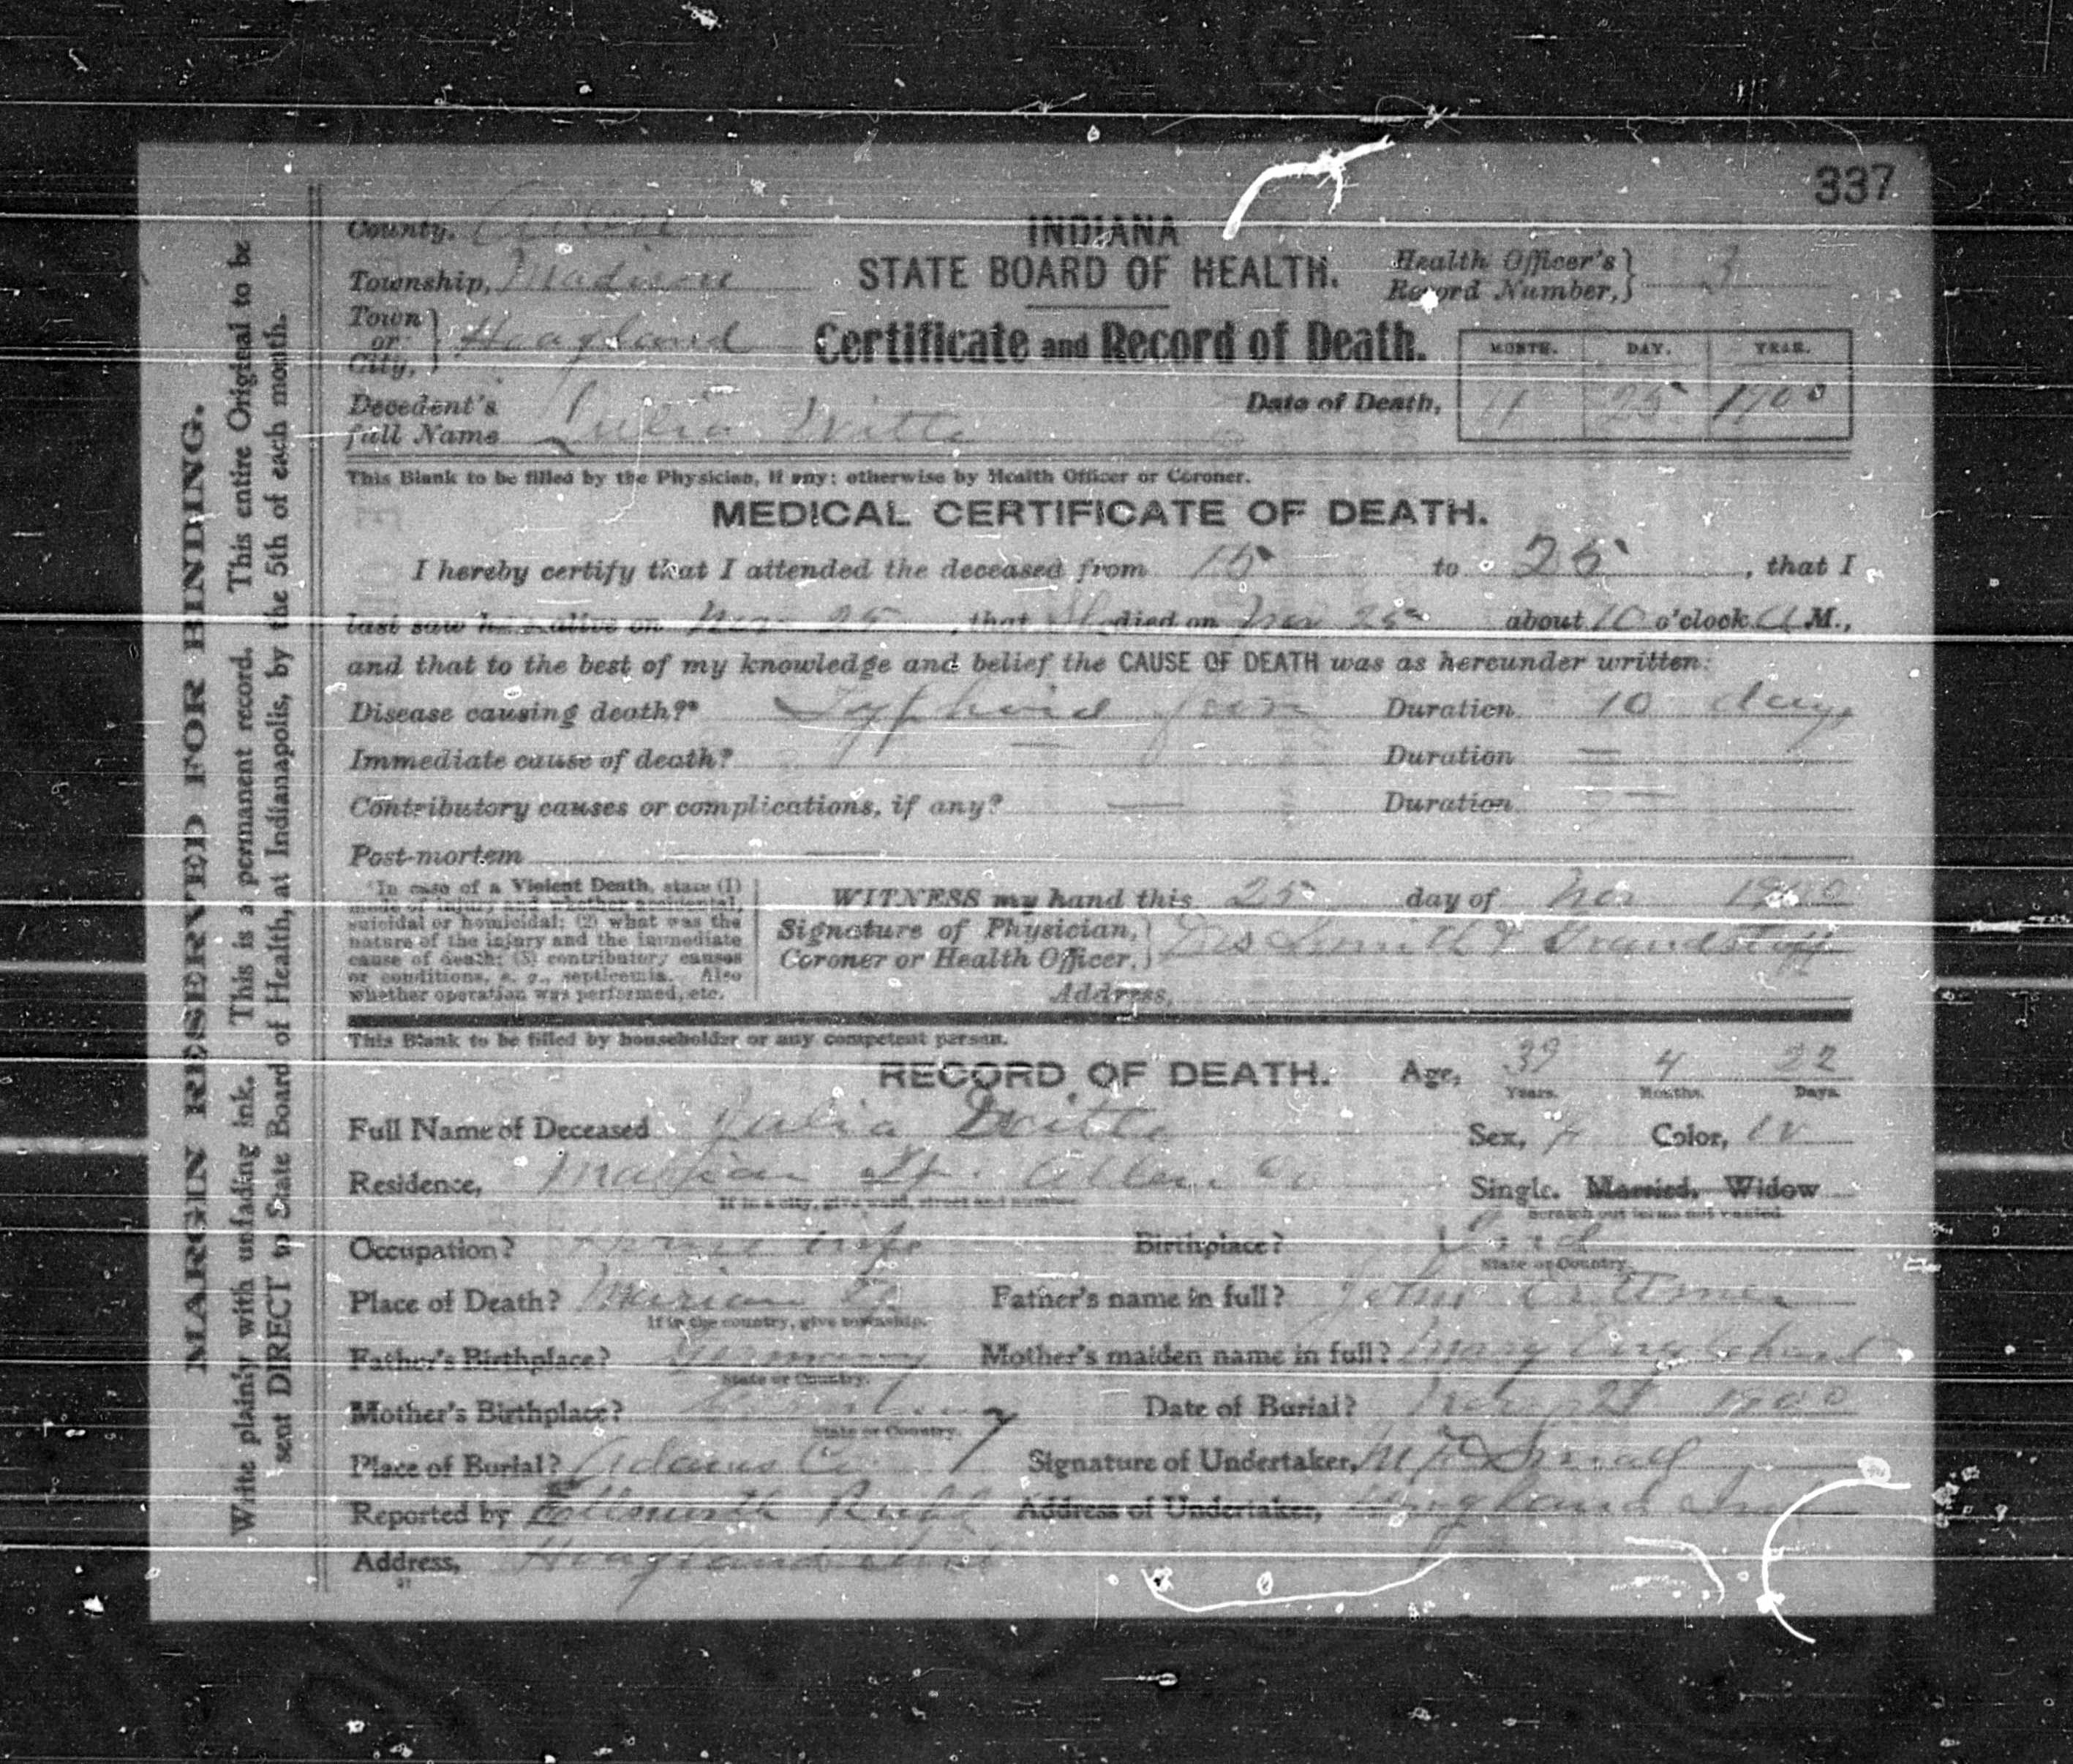 337
County, Allen
INDIANA
STATE BOARD OF HEALTH.
Health Officer's Record Number, 3
Township, Madison
Town or City, Hoagland
Certificate and Record of Death.
MONTH. DAY. YEAR.
Date of Death, 11 25 1900
Decedent's full Name Witte
This Blank to be filled by the Physician, if any; otherwise by Health Officer or Coroner.
MEDICAL CERTIFICATE OF DEATH.
I hereby certify that I attended the deceased from 15 to 25, that I
last saw h alive on Nov 25, that She died on Nov 25 about 10 o'clock A M.,
and that to the best of my knowledge and belief the CAUSE OF DEATH was as hereunder written:
Disease causing death?* Typhoid fever Duration 10 days
Immediate cause of death? — Duration —
Contributory causes or complications, if any? — Duration —
Post-mortem —
*In case of a Violent Death, state (1)
mode of injury and whether accidental,
suicidal or homicidal; (2) what was the
nature of the injury and the immediate
cause of death; (3) contributory causes
or conditions, e. g., septicemia. Also
whether operation was performed, etc.
WITNESS my hand this 25 day of Nov 1900
Signature of Physician, Coroner or Health Officer, Drs Smith & Grandstaff
Address,
This Blank to be filled by householder or any competent person.
RECORD OF DEATH. Age, 39 4 22
Years. Months. Days.
Full Name of Deceased Julia Witte Sex, F Color, W
Residence, Tp. Allen Co Single. Married. Widow
If in a city, give ward, street and number
Scratch out terms not wanted.
Occupation? House wife Birthplace? Ind
State or Country.
Place of Death? Marion Tp Father's name in full? John
If in the country, give township.
Father's Birthplace? Germany Mother's maiden name in full? Mary
State or Country.
Mother's Birthplace? Germany Date of Burial? 1900
State or Country.
Place of Burial? Adams Co. Signature of Undertaker, Smead
Reported by Ellsworth Address of Undertaker, Hoagland Ind
Address, Hoagland Ind
MARGIN RESERVED FOR BINDING.
Write plainly with unfading ink. This is a permanent record. This entire Original to be
sent DIRECT to State Board of Health, at Indianapolis, by the 5th of each month.